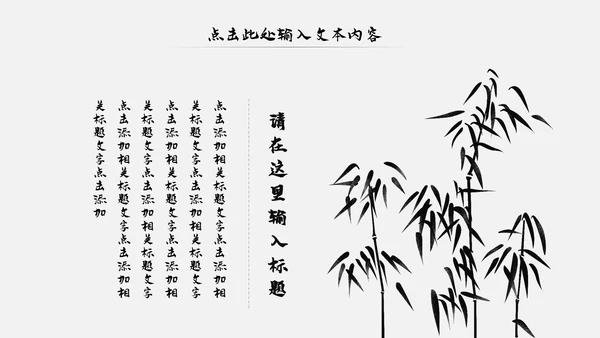 点击此处输入文本内容
请在这里输入标题
点击添加相关标题文字点击添加相
关标题文字点击添加相关标题文字
点击添加相关标题文字点击添加相
关标题文字点击添加相关标题文字
点击添加相关标题文字点击添加相
关标题文字点击添加